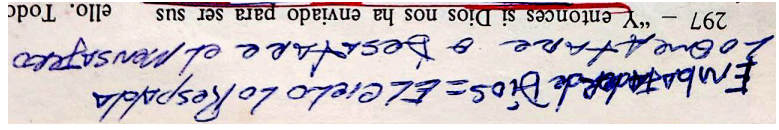 Embajador de Dios = El Cielo Lo Respalda
Lo que Atare o Desatare el Mensajero
297 – “Y entonces si Dios nos ha enviado para ser sus
ello. Todo